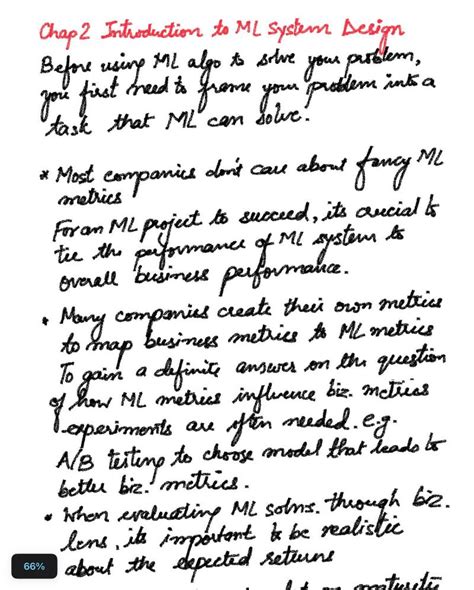 Chap 2 Introduction to ML System Design
Before using ML algo to solve your problem,
you first need to frame your problem into a
task that ML can solve.
* Most companies don't care about fancy ML
metrics
For an ML project to succeed, its crucial to
tie the performance of ML system to
overall business performance.
• Many companies create their own metrics
to map business metrics to ML metrics
To gain a definite answer on the question
of how ML metrics influence biz. metrics
experiments are often needed. e.g.
A/B testing to choose model that leads to
better biz. metrics.
• When evaluating ML solns. through biz.
lens, its important to be realistic
about the expected returns
66%
maturity